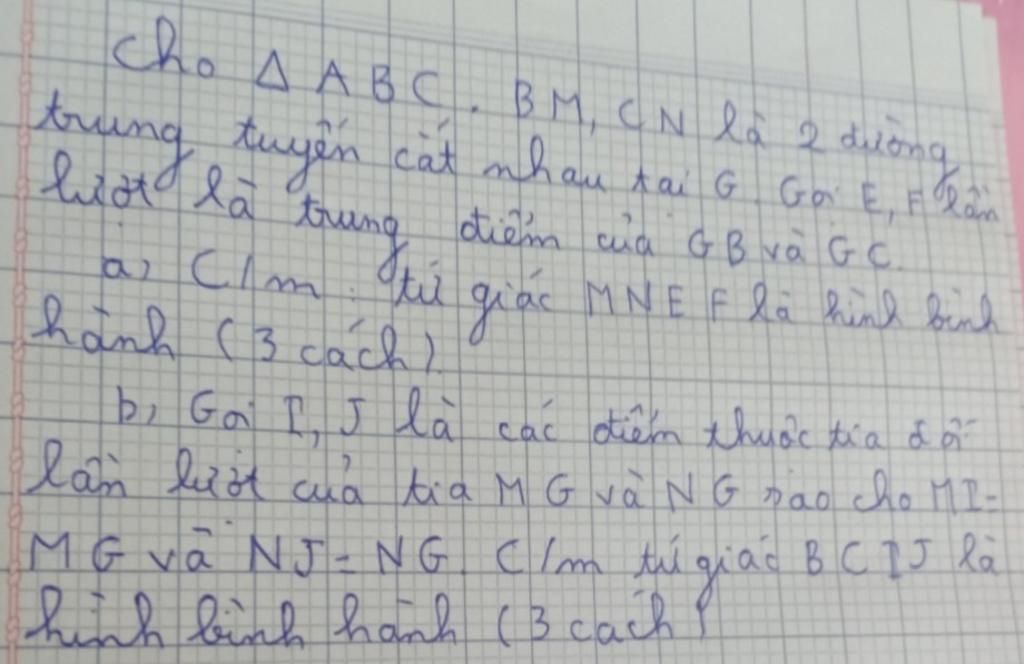 Cho Δ ABC. BM, CN là 2 đường
trung tuyến cắt nhau tại G. Gọi E, F lần
lượt là trung điểm của GB và GC.
a, C/m tứ giác MNEF là hình bình
hành (3 cách)
b, Gọi I, J là các điểm thuộc tia đối
lần lượt của tia MG và NG sao cho MI=
MG và NJ = NG. C/m tứ giác BCIJ là
hình bình hành (3 cách)